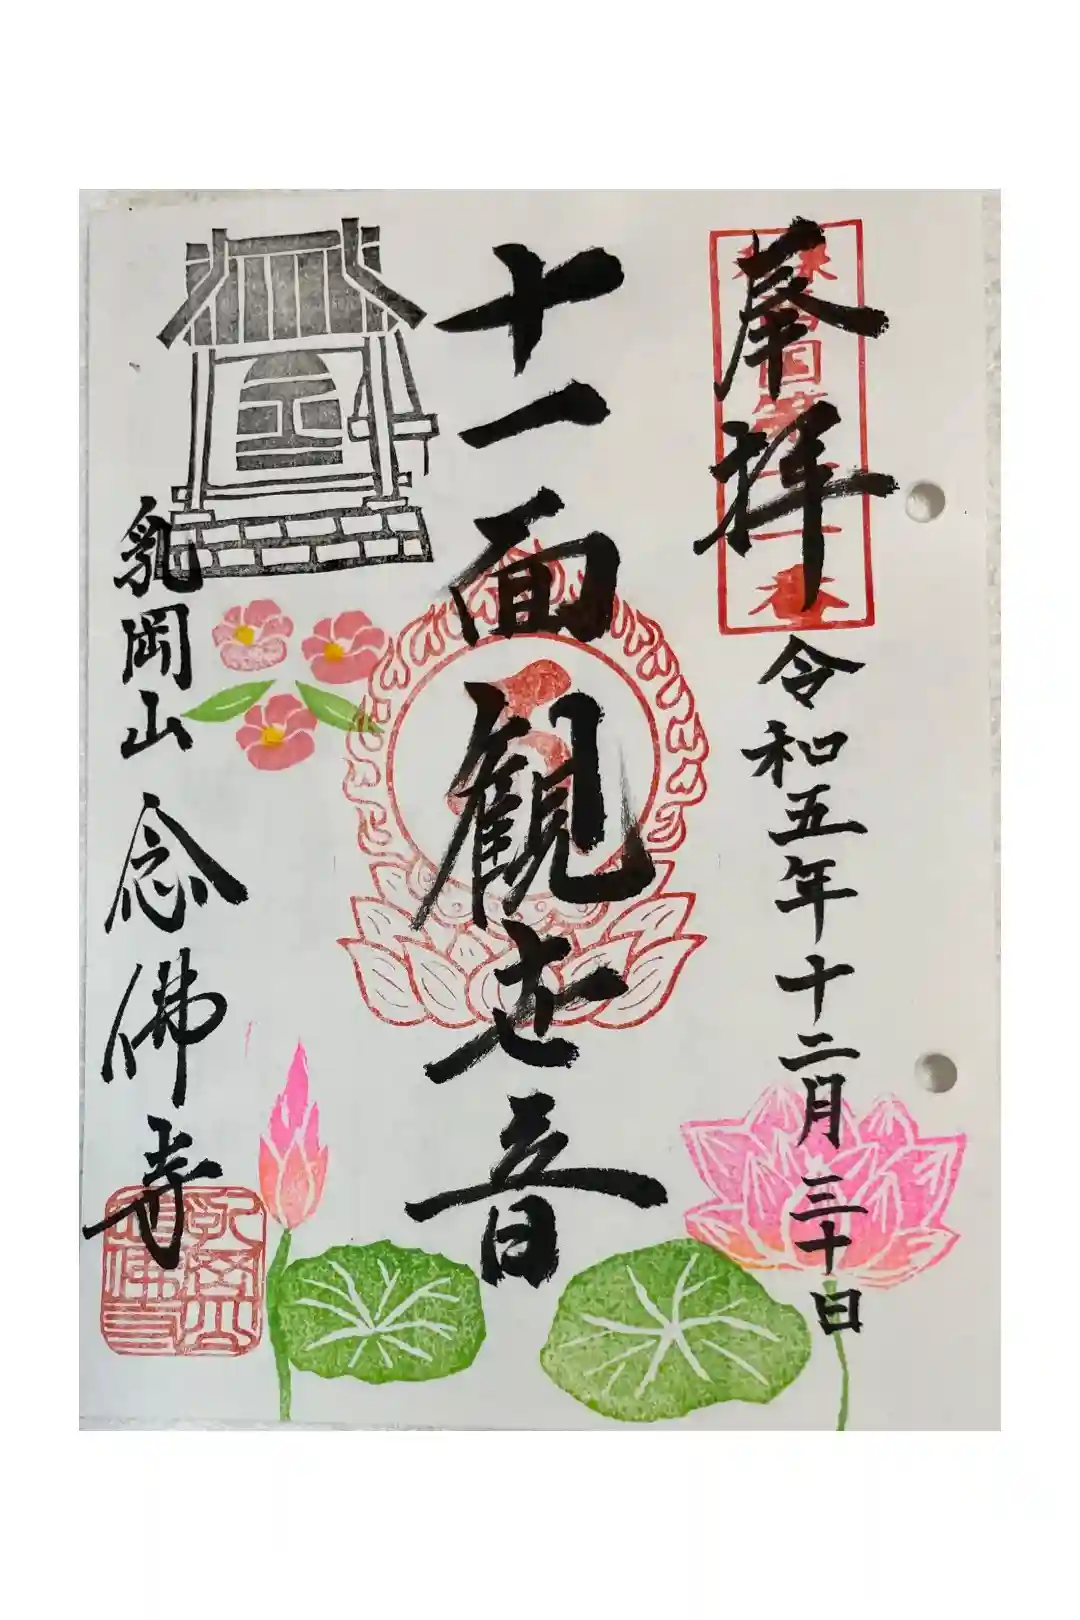 奉拝
令和五年十二月三十日
十一面観世音
乳岡山 念佛寺